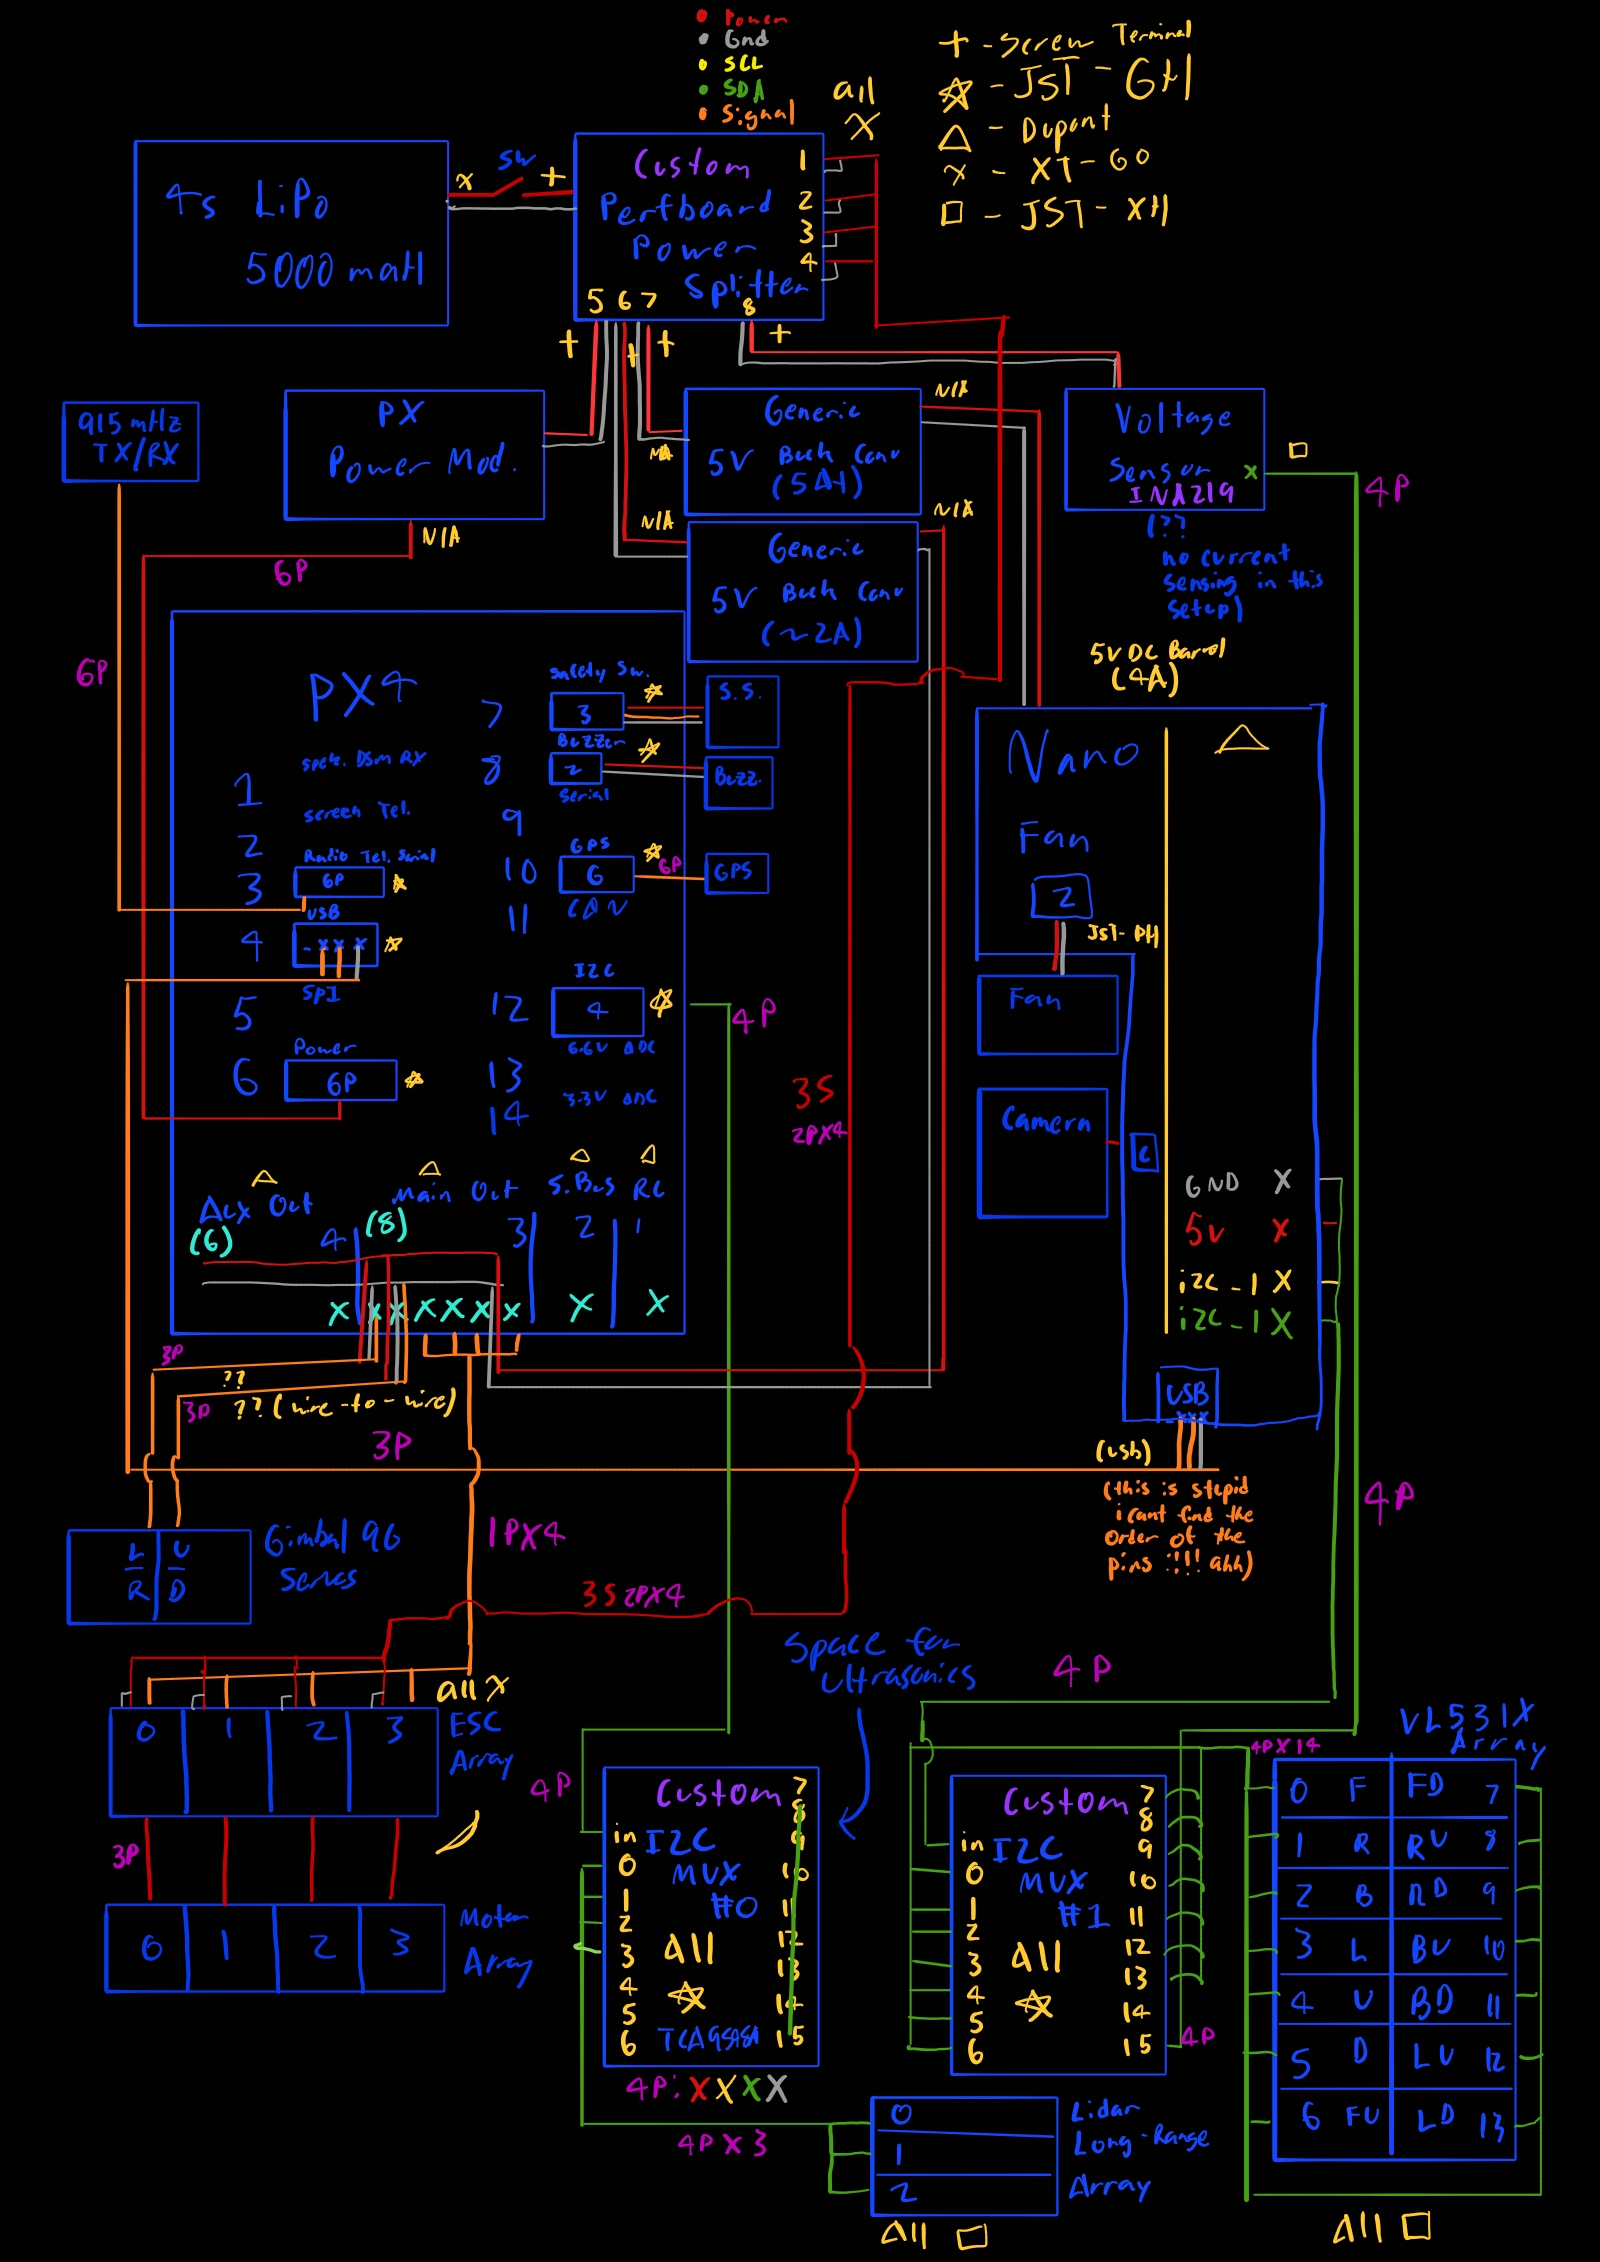 Power
Gnd
SCL
SDA
Signal
+ - Screw Terminal
☆ - JST - GH
△ - Dupont
x - XT-60
□ - JST-XH
all
X
4s LiPo
5000 mAH
x
SW
+
Custom
Perfboard
Power
Splitter
1
2
3
4
5 6 7
8
+
+
+
+
915 mHz
TX/RX
PX
Power Mod.
N/A
6P
6P
Generic
5V Buck Conv
(5A)
N/A
N/A
Generic
5V Buck Conv
(~2A)
N/A
N/A
Voltage
Sensor x
INA219
(??
no current
sensing in this
setup)
4P
5V DC Barrel
(4A)
PX4
1
spek. DSM RX
2
screen Tel.
3
Radio Tel. Serial
6P
4
USB
- x x x
5
SPI
6
Power
6P
7
Safety Sw.
3
S.S.
8
Buzzer
2
Buzz.
9
Serial
10
GPS
6
6P
GPS
11
CAN
12
I2C
4
4P
13
6.6V ADC
14
3.3V ADC
Aux Out
(6)
4
Main Out
(8)
3
S.Bus
2
RC
1
X X X X X X X X X
3P
??
3P
?? (wire-to-wire)
3P
3S
2PX4
Nano
Fan
2
JST-PH
Fan
Camera
C
GND X
5v X
i2C-1 X
i2C-1 X
USB
- x x x
(usb)
(this is stupid
i cant find the
order of the
pins !!!! ahh)
4P
L
R
U
D
Gimbal 9G
Series
1PX4
3S 2PX4
all x
0 1 2 3
ESC
Array
3P
0 1 2 3
Motor
Array
Space for
Ultrasonics
4P
4P
Custom
I2C
MUX
#0
All
☆
TCA9548A
in
0
1
2
3
4
5
6
7
8
9
10
11
12
13
14
15
4P: X X X X
4P X 3
Custom
I2C
MUX
#1
All
☆
in
0
1
2
3
4
5
6
7
8
9
10
11
12
13
14
15
4P
0
1
2
Lidar
Long-Range
Array
All □
4PX14
VL531X
Array
0 F FD 7
1 R RU 8
2 B RD 9
3 L BU 10
4 U BD 11
5 D LU 12
6 FU LD 13
All □